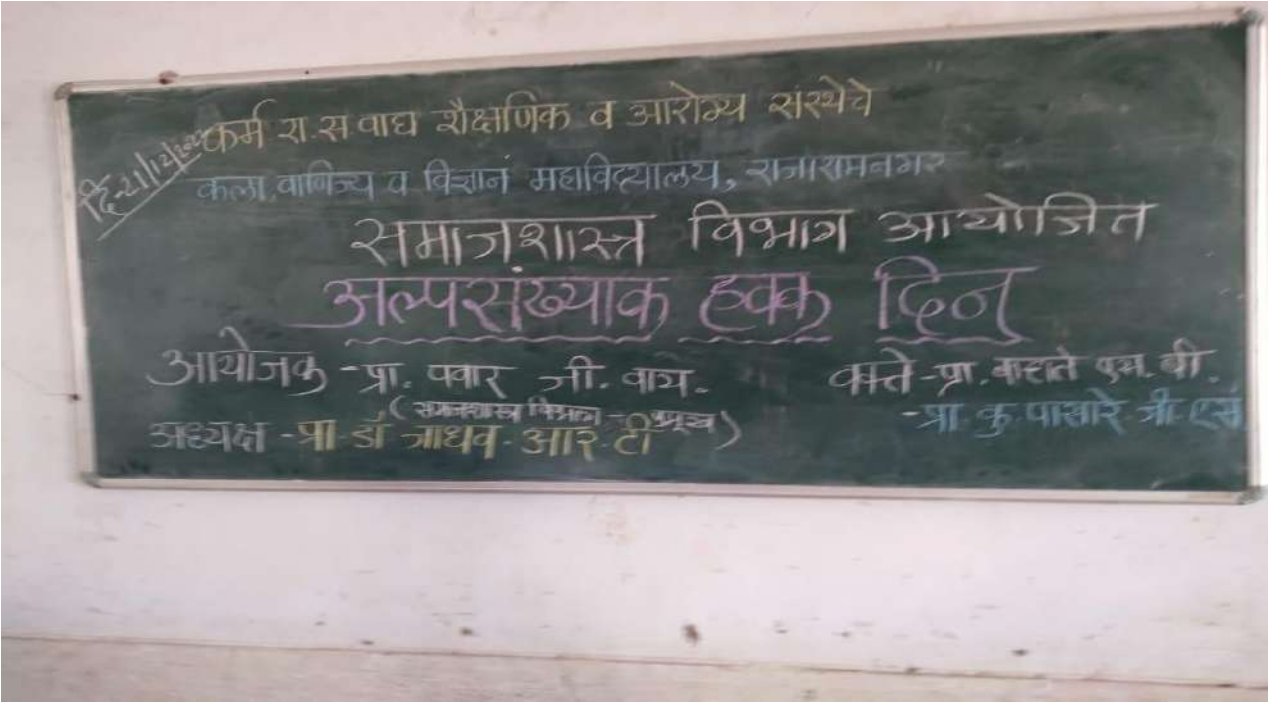 कर्म रा.स वाघ शैक्षणिक व आरोग्य संस्थेचे
कला, वाणिज्य व विज्ञानं महाविद्यालय, राजारामनगर
समाजशास्त्र विभाग आयोजित
अल्पसंख्याक हक्क दिन
आयोजक - प्रा. पवार जी. वाय.
(समाजशास्त्र विभाग - प्रमुख)
अध्यक्ष - प्रा डॉ जाधव आर टी
वक्ते - प्रा. एम. बी.
- प्रा कु पासारे जी एस